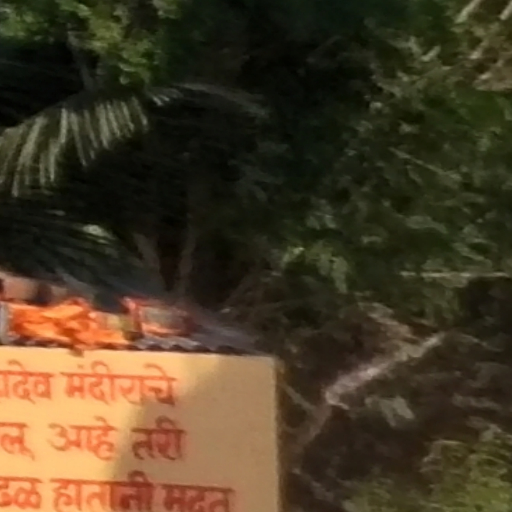 ादेव मंदीराचे
लू आहे तरी
ढळ हातानी मदत